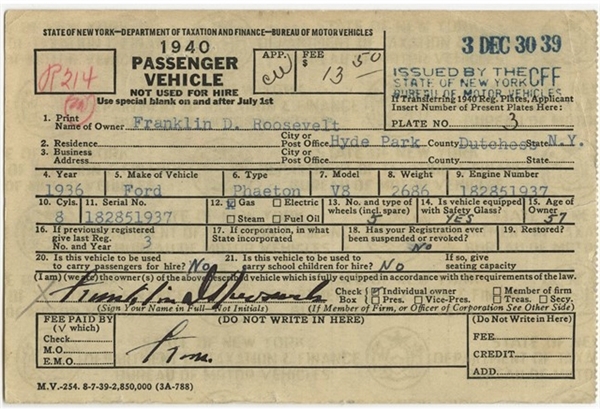 STATE OF NEW YORK—DEPARTMENT OF TAXATION AND FINANCE—BUREAU OF MOTOR VEHICLES
1940
PASSENGER
VEHICLE
NOT USED FOR HIRE
Use special blank on and after July 1st
APP.
FEE
$ 13 50
3 DEC 30 39
ISSUED BY THE CFF
STATE OF NEW YORK
BUREAU OF MOTOR VEHICLES
If Transferring 1940 Reg. Plates, Applicant
Insert Number of Present Plates Here:
PLATE NO. 3
R214
1. Print Name of Owner Franklin D. Roosevelt
2. Residence City or Post Office Hyde Park County Dutchess State N.Y.
3. Business Address City or Post Office County State
4. Year 5. Make of Vehicle 6. Type 7. Model 8. Weight 9. Engine Number
1936 Ford Phaeton V8 2686 182851937
10. Cyls. 11. Serial No. 12. Gas Electric 13. No. and type of wheels (incl. spare) 14. Is vehicle equipped with Safety Glass? 15. Age of Owner
8 182851937 Steam Fuel Oil 5 YES 57
16. If previously registered give last Reg. No. and Year 3 17. If corporation, in what State incorporated 18. Has your Registration ever been suspended or revoked? No 19. Restored?
20. Is this vehicle to be used to carry passengers for hire? No 21. Is this vehicle to be used to carry school children for hire? No If so, give seating capacity
(I am) (we are) the owner(s) of the above described vehicle which is fully equipped in accordance with the requirements of the law.
Franklin D Roosevelt
Check Box Individual owner Member of firm
Pres. Vice-Pres. Treas. Secy.
(Sign Your Name in Full—Not Initials) (If Member of Firm, or Officer of Corporation See Other Side)
FEE PAID BY
(√ which)
Check
M.O.
E.M.O.
(DO NOT WRITE IN HERE)
(Do Not Write in Here)
FEE
CREDIT
ADD.
M.V.-254. 8-7-39-2,850,000 (3A-788)